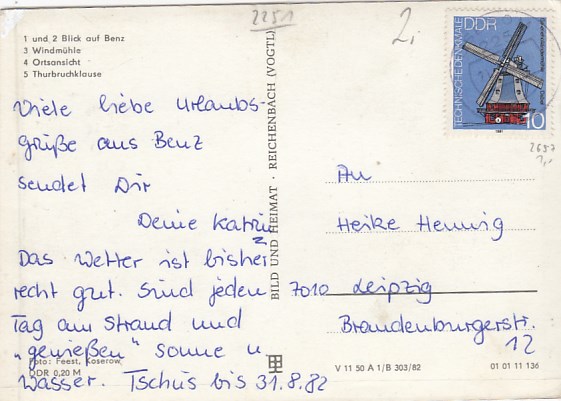 2251
2,-
1 und 2 Blick auf Benz
3 Windmühle
4 Ortsansicht
5 Thurbruchklause
Viele liebe Urlaubs-
grüße aus Benz
sendet Dir
Deine Katrin
Das Wetter ist bisher
recht gut. Sind jeden
Tag am Strand und
„genießen“ Sonne u.
Wasser. Tschüs bis 31.8.82
Foto: Feest, Koserow
DDR 0,20 M
BILD UND HEIMAT · REICHENBACH (VOGTL)
TECHNISCHE DENKMALE
DDR
10
1981
2657
1,-
An
Heike Hennig
7010 Leipzig
Brandenburgerstr.
12
V 11 50 A 1/B 303/82
01 01 11 136